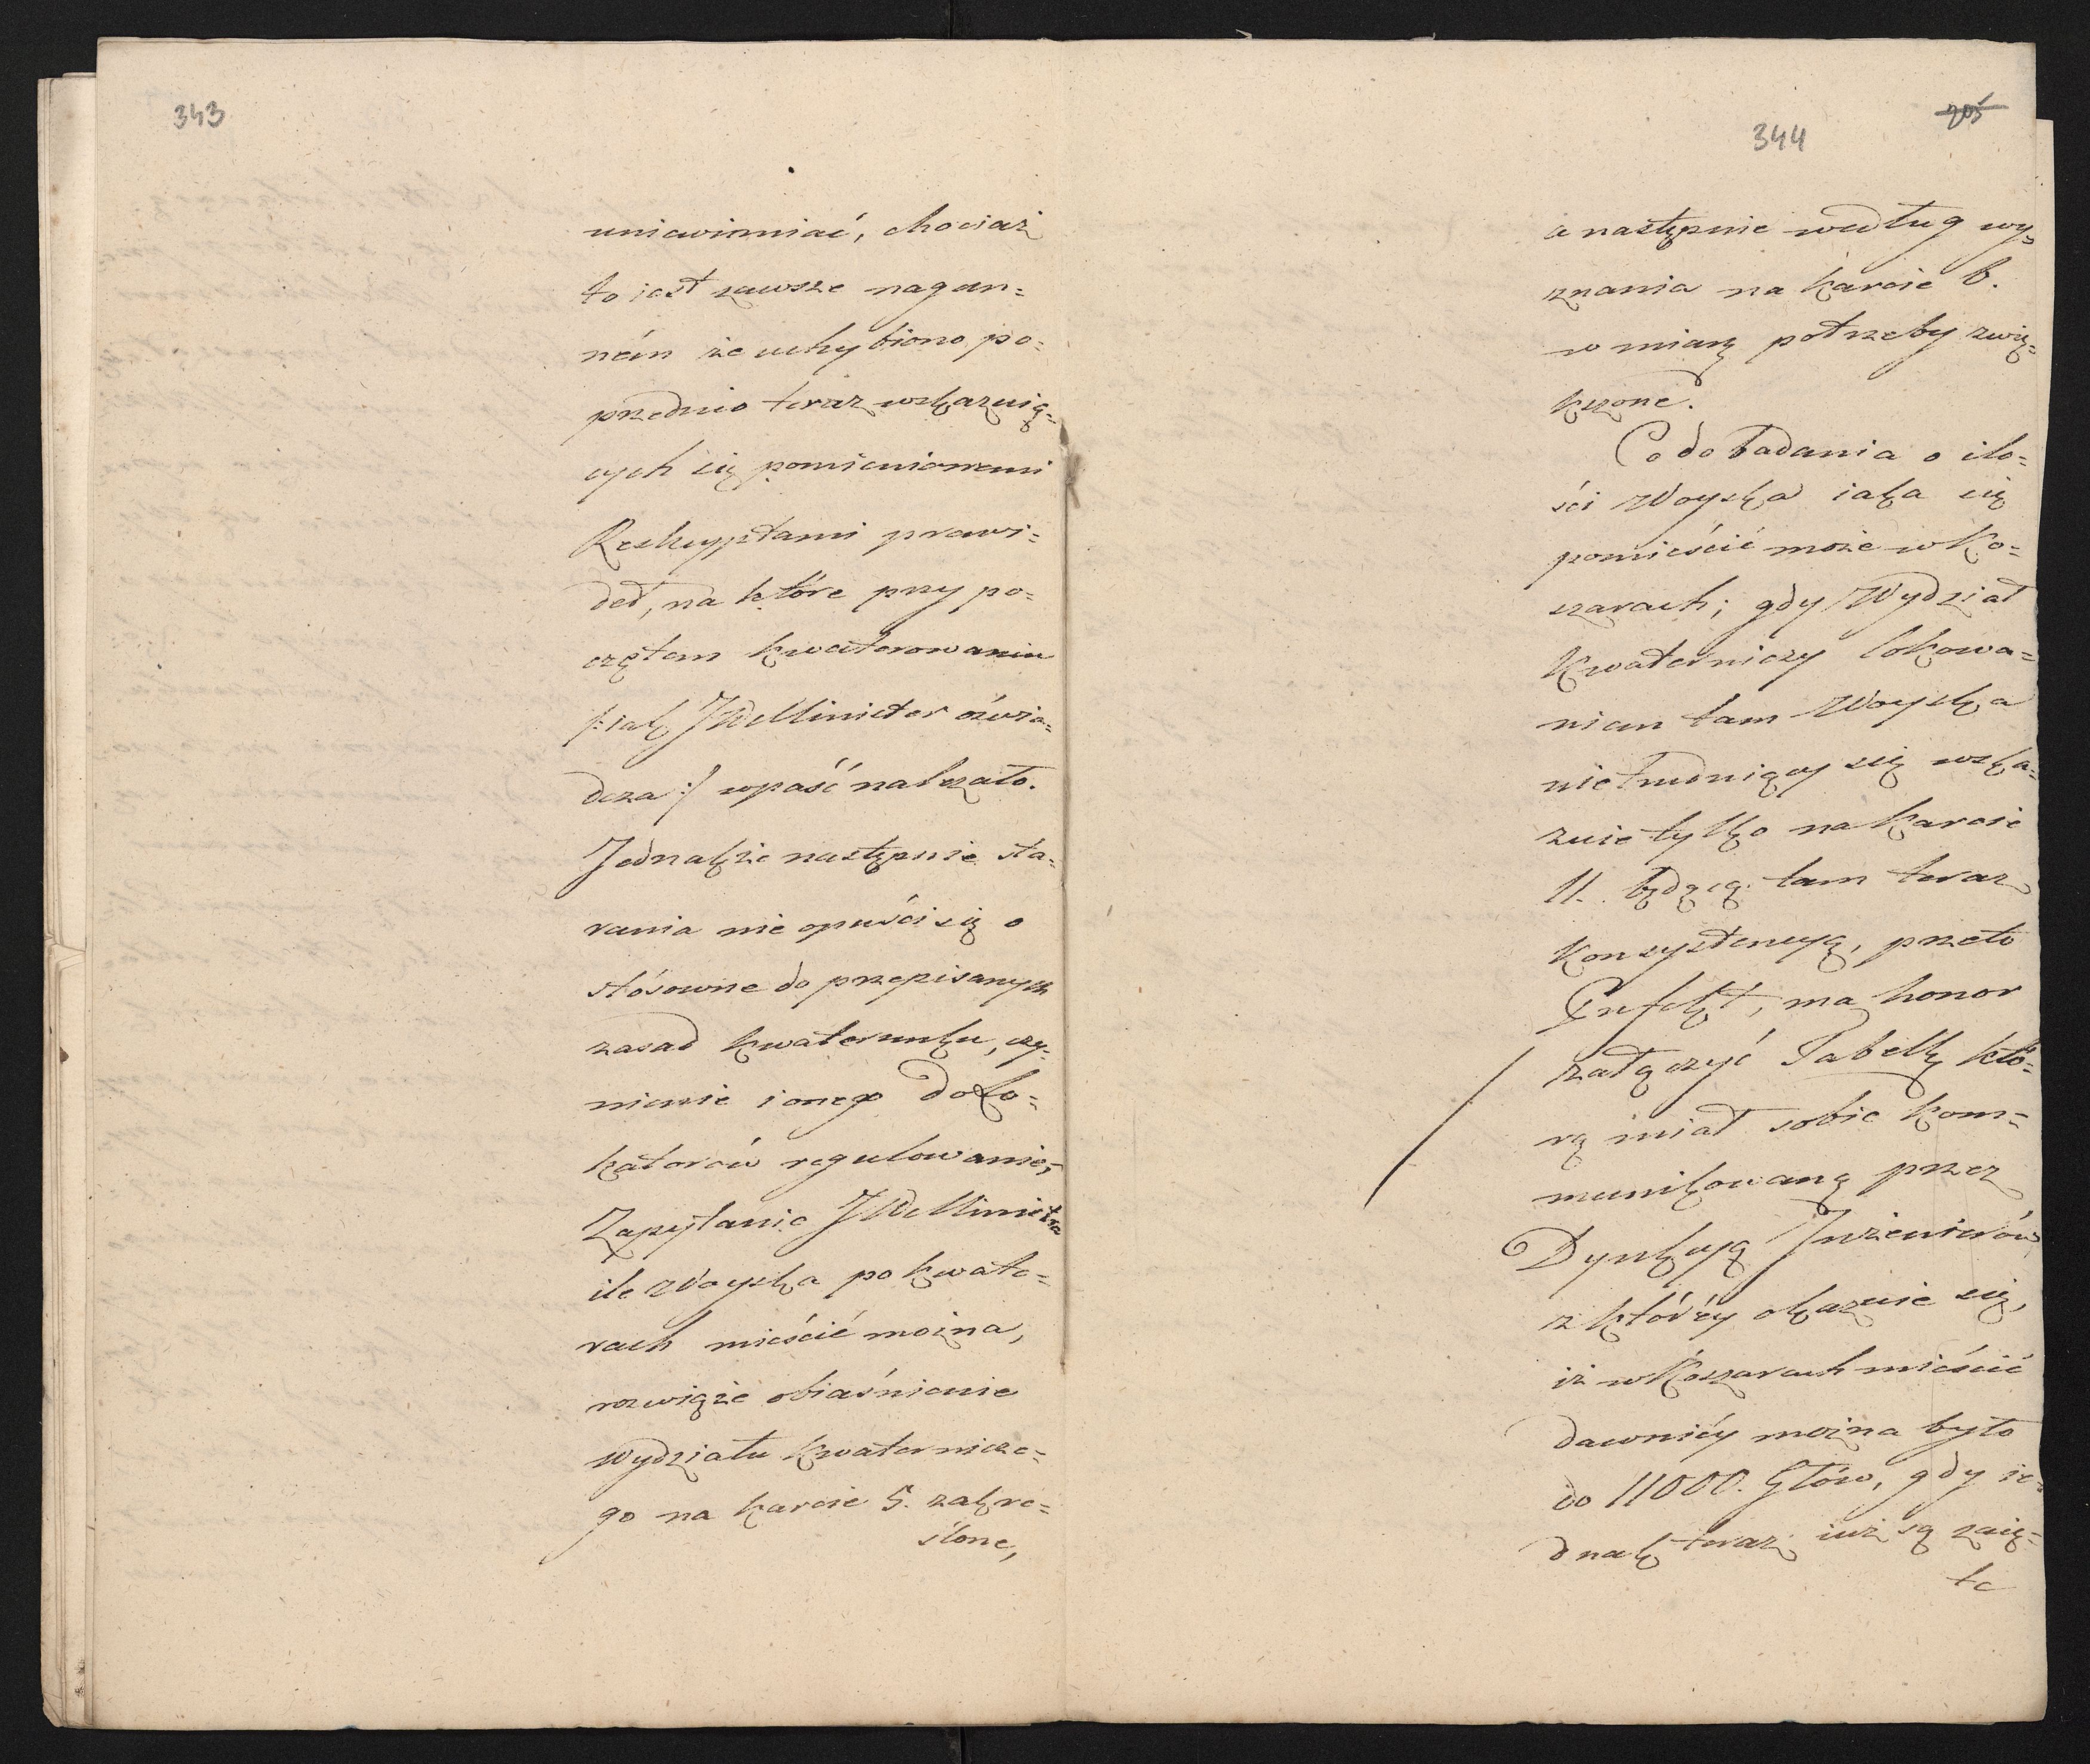 343
uniewinniać, chociaż
to iest zawsze nagan=
ném że uchybiono po=
przednio teraz wskazuią=
cych się pomienionemi
Reskryptami prawi=
deł, na które przy po=
czętem kwaterowaniu
/:iak JW Minister oświa=
dcza:/ wpaść należało.
Jednakże następnie sta=
rania nie opuści się o
stósowne do przepisanych
zasad kwaterunku, czy=
nienie i onego do Lo=
katorów regulowanie,
Zapytanie JW Ministra
ile Woyska po kwate=
rach mieścić można,
rozwiąże obiaśnienie
Wydziału Kwaternicze=
go na karcie 5. zakre=
ślone,
205
344
a następnie według wy=
znania na karcie 6.
w miarę potrzeby zwię=
kszone.
Co do badania o ilo=
ści Woyska iaka się
pomieścić może w Ko=
szarach; gdy Wydział
Kwaterniczy lokowa=
niem tam Woyska
nietrudniący się wska=
zuie tylko na karcie
11. będącą tam teraz
konsystencyą, przeto
Prefekt, ma honor
załączyć Tabellę któ=
rą miał sobie kom=
munikowaną przez
Dyrekcyą Inżenierów
z któréy okazuie się,
iż w Koszarach mieścić
dawniéy można było
do 11000. Głów, gdy ie=
dnak teraz iuż są zaię=
te